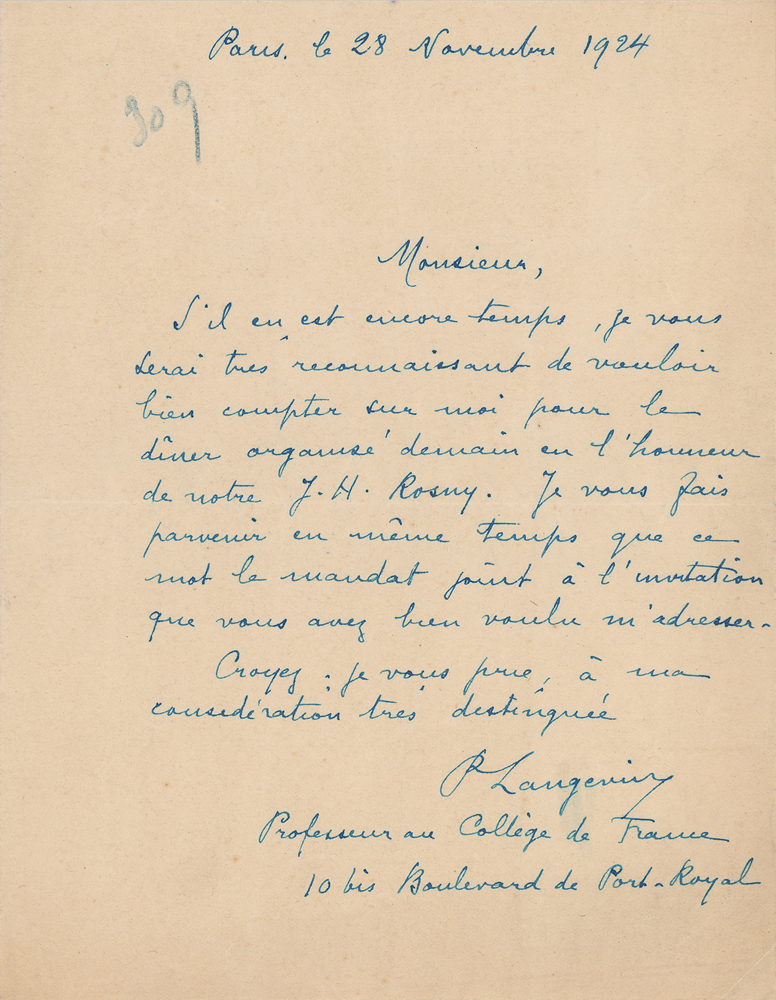 Paris. le 28 Novembre 1924
309
Monsieur,
S'il en est encore temps, je vous
serai très reconnaissant de vouloir
bien compter sur moi pour le
dîner organisé demain en l'honneur
de notre J.H. Rosny. Je vous fais
parvenir en même temps que ce
mot le mandat joint à l'invitation
que vous avez bien voulu m'adresser.
Croyez, je vous prie, à ma
considération très distinguée
P Langevin
Professeur au Collège de France
10 bis Boulevard de Port-Royal